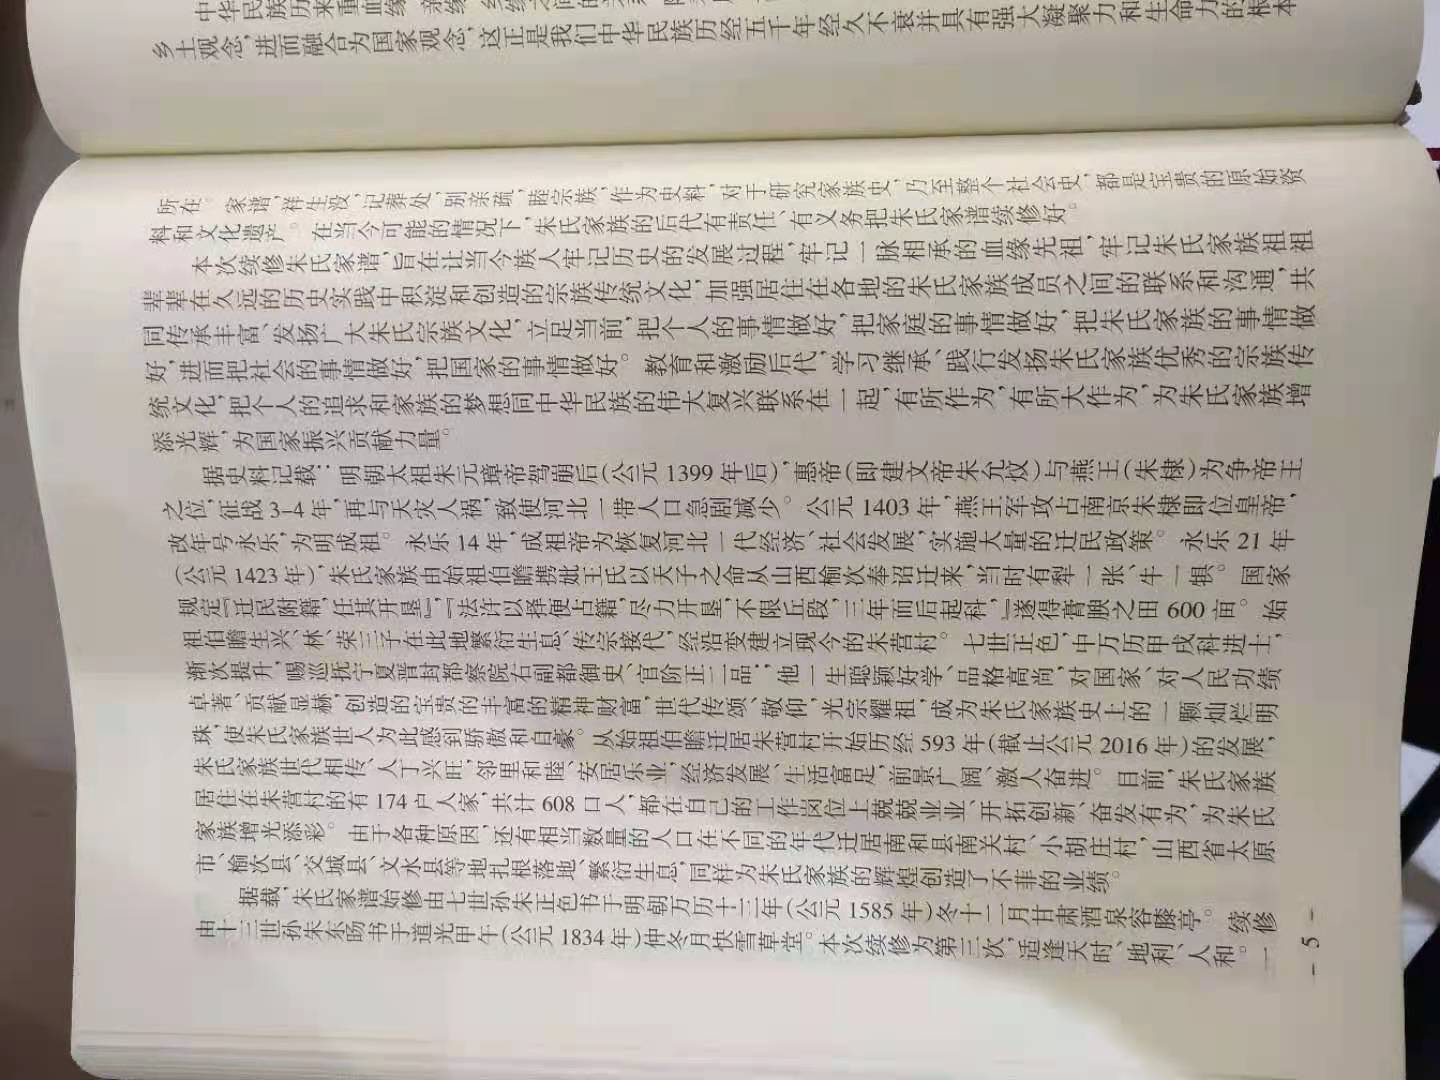 中华民族历来重血缘、亲缘、
乡土观念,进而融合为国家观念,这正是我们中华民族历经五千年经久不衰并具有强大凝聚力和生命力的根本
所在。家谱,祥生没,记葬处,别亲疏,睦宗族,作为史料,对于研究家族史,乃至整个社会史,都是宝贵的原始资
料和文化遗产。在当今可能的情况下,朱氏家族的后代有责任、有义务把朱氏家谱续修好。
本次续修朱氏家谱,旨在让当今族人牢记历史的发展过程,牢记一脉相承的血缘先祖,牢记朱氏家族祖祖
辈辈在久远的历史实践中积淀和创造的宗族传统文化,加强居住在各地的朱氏家族成员之间的联系和沟通,共
同传承丰富、发扬广大朱氏宗族文化,立足当前,把个人的事情做好,把家庭的事情做好,把朱氏家族的事情做
好,进而把社会的事情做好,把国家的事情做好。教育和激励后代,学习继承、践行发扬朱氏家族优秀的宗族传
统文化,把个人的追求和家族的梦想同中华民族的伟大复兴联系在一起,有所作为,有所大作为,为朱氏家族增
添光辉,为国家振兴贡献力量。
据史料记载:明朝太祖朱元璋帝驾崩后(公元 1399 年后),惠帝(即建文帝朱允炆)与燕王(朱棣)为争帝王
之位,征战 3-4 年,再与天灾人祸,致使河北一带人口急剧减少。公元 1403 年,燕王军攻占南京朱棣即位皇帝,
改年号永乐,为明成祖。永乐 14 年,成祖帝为恢复河北一代经济、社会发展,实施大量的迁民政策。永乐 21 年
(公元 1423 年),朱氏家族由始祖伯瞻携妣王氏以天子之命从山西榆次奉诏迁来,当时有犁一张、牛一犋。国家
规定『迁民附籍,任其开垦』,『法许以择便占籍,尽力开垦,不限丘段,三年而后起科,』遂得膏腴之田 600 亩。始
祖伯瞻生兴、林、荣三子在此地繁衍生息、传宗接代,经沿变建立现今的朱营村。七世正色,中万历甲戌科进士,
渐次提升,赐巡抚宁夏晋封都察院右副都御史、官阶正二品;他一生聪颖好学、品格高尚,对国家、对人民功绩
卓著、贡献显赫,创造的宝贵的丰富的精神财富,世代传颂、敬仰,光宗耀祖,成为朱氏家族史上的一颗灿烂明
珠,使朱氏家族世人为此感到骄傲和自豪。从始祖伯瞻迁居朱营村开始历经 593 年(截止公元 2016 年)的发展,
朱氏家族世代相传、人丁兴旺,邻里和睦、安居乐业,经济发展、生活富足,前景广阔、激人奋进。目前,朱氏家族
居住在朱营村的有 174 户人家,共计 608 口人,都在自己的工作岗位上兢兢业业、开拓创新、奋发有为,为朱氏
家族增光添彩。由于各种原因,还有相当数量的人口在不同的年代迁居南和县南关村、小胡庄村,山西省太原
市、榆次县、交城县、文水县等地扎根落地、繁衍生息,同样为朱氏家族的辉煌创造了不菲的业绩。
据载,朱氏家谱始修由七世孙朱正色书于明朝万历十三年(公元 1585 年)冬十二月甘肃酒泉容膝亭。续修
由十三世孙朱东旸书于道光甲午(公元 1834 年)仲冬月快雪草堂。本次续修为第三次,适逢天时、地利、人和。一
- 5 -